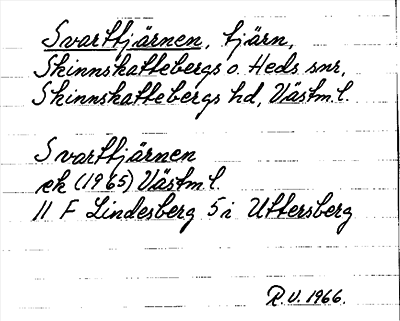 Svarttjärnen, tjärn,
Skinnskattebergs o. Heds snr,
Skinnskattebergs hd, Västm l.
Svarttjärnen
ek (1965) Västm l.
11 F Lindesberg 5 i Uttersberg
R.V. 1966.